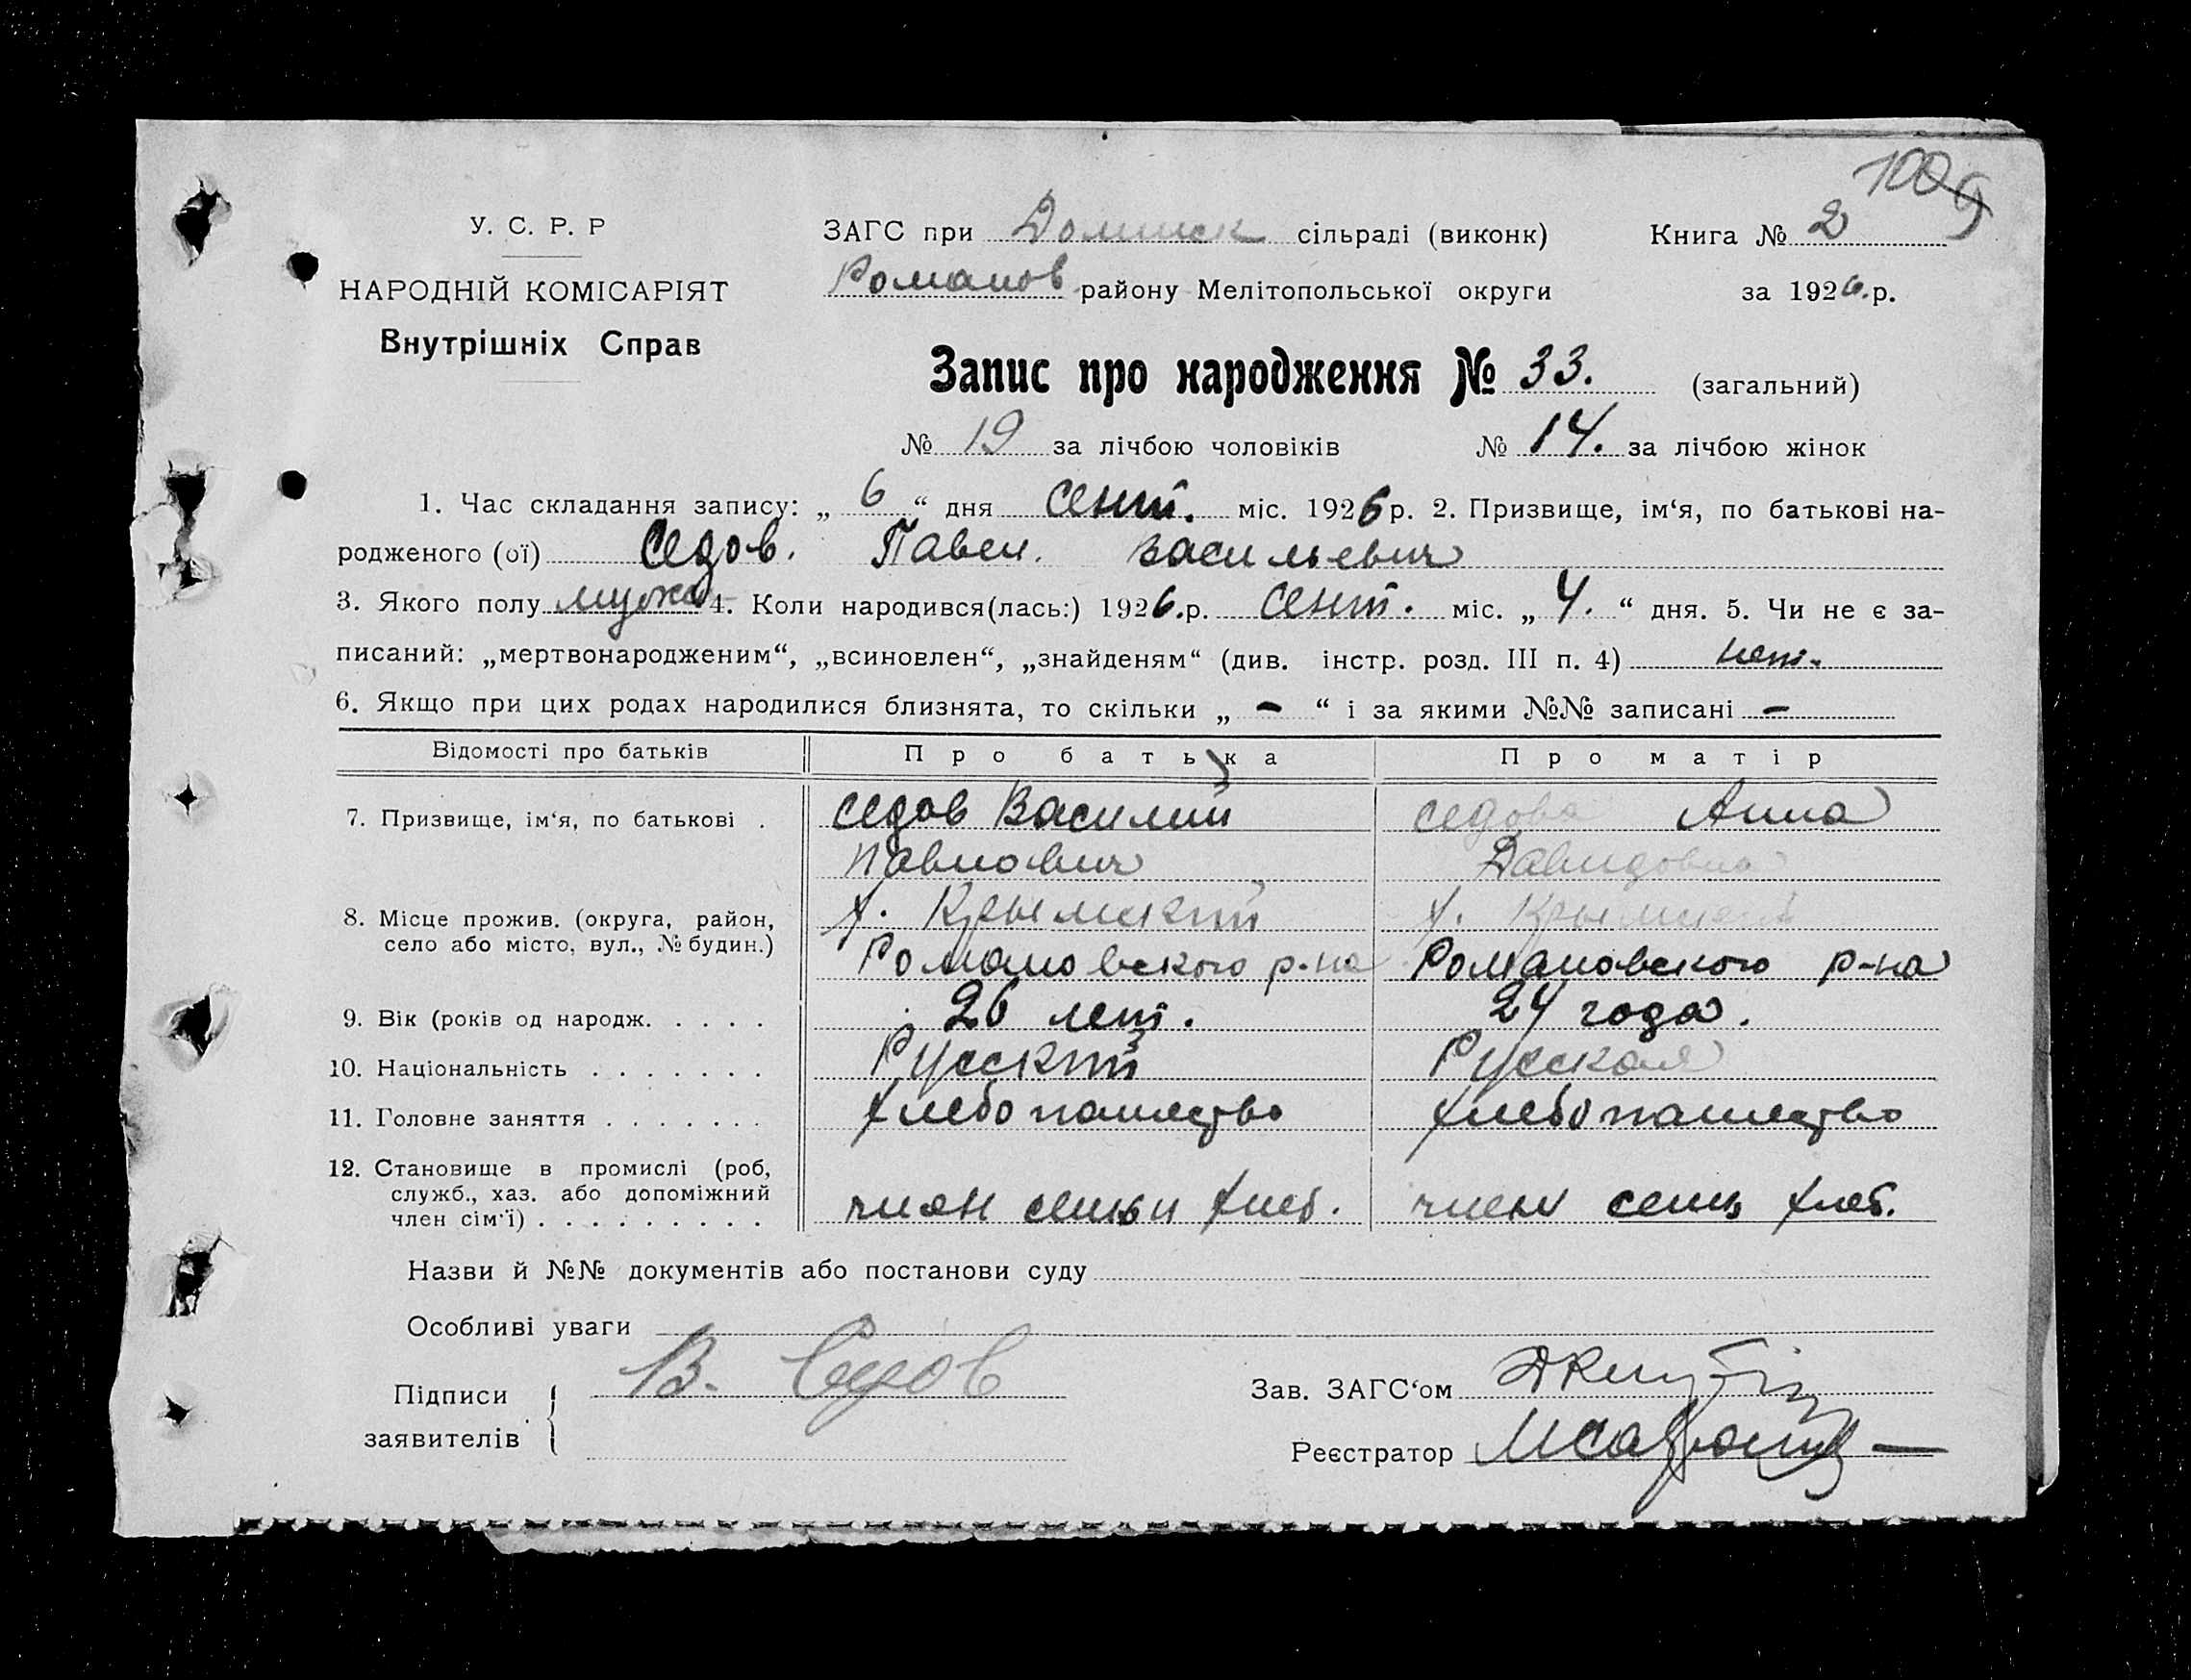 100 9
У. С. Р. Р
НАРОДНІЙ КОМІСАРІЯТ
Внутрішніх Справ
ЗАГС при Доминск сільраді (виконк)
Книга № 2
Романов району Мелітопольської округи
за 1926.р.
Запис про народження № 33. (загальний)
№ 19 за лічбою чоловіків № 14. за лічбою жінок
1. Час складання запису: „ 6 “ дня Сент. міс. 1926 р. 2. Призвище, ім‘я, по батькові на-
родженого (ої) Седов. Павел. Васильевич
3. Якого полу мужс 4. Коли народився(лась:) 1926.р. Сент. міс. „ 4. “ дня. 5. Чи не є за-
писаний: „мертвонародженим“, „всиновлен“, „знайденям“ (див. інстр. розд. III п. 4) нет.
6. Якщо при цих родах народилися близнята, то скільки „ - “ і за якими №№ записані -
Відомості про батьків Про батька Про матір
7. Призвище, ім‘я, по батькові . Седов Василий Седова Анна
Павлович Давидовна
8. Місце прожив. (округа, район, х. Крымский х. Крымский
село або місто, вул., № будин.) Романовского р-на Романовского р-на
9. Вік (років од народж. . . . . 26 лет. 24 года.
10. Національність . . . . . . . Русский Русская
11. Головне заняття . . . . . . . хлебопашество хлебопашество
12. Становище в промислі (роб,
служб., хаз. або допоміжний
член сім‘ї) . . . . . . . . . член семьи хлеб. член семьи хлеб.
Назви й №№ документів або постанови суду
Особливі уваги
Підписи В. Седов
заявителів
Зав. ЗАГС‘ом
Реєстратор